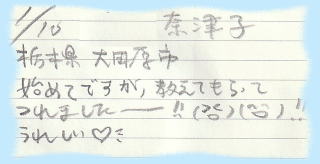 1/10 奈津子
栃木県 大田原市
始めてですが、教えてもらって
つれましたーー!!(^o^)(^o^)!!
うれしい♡